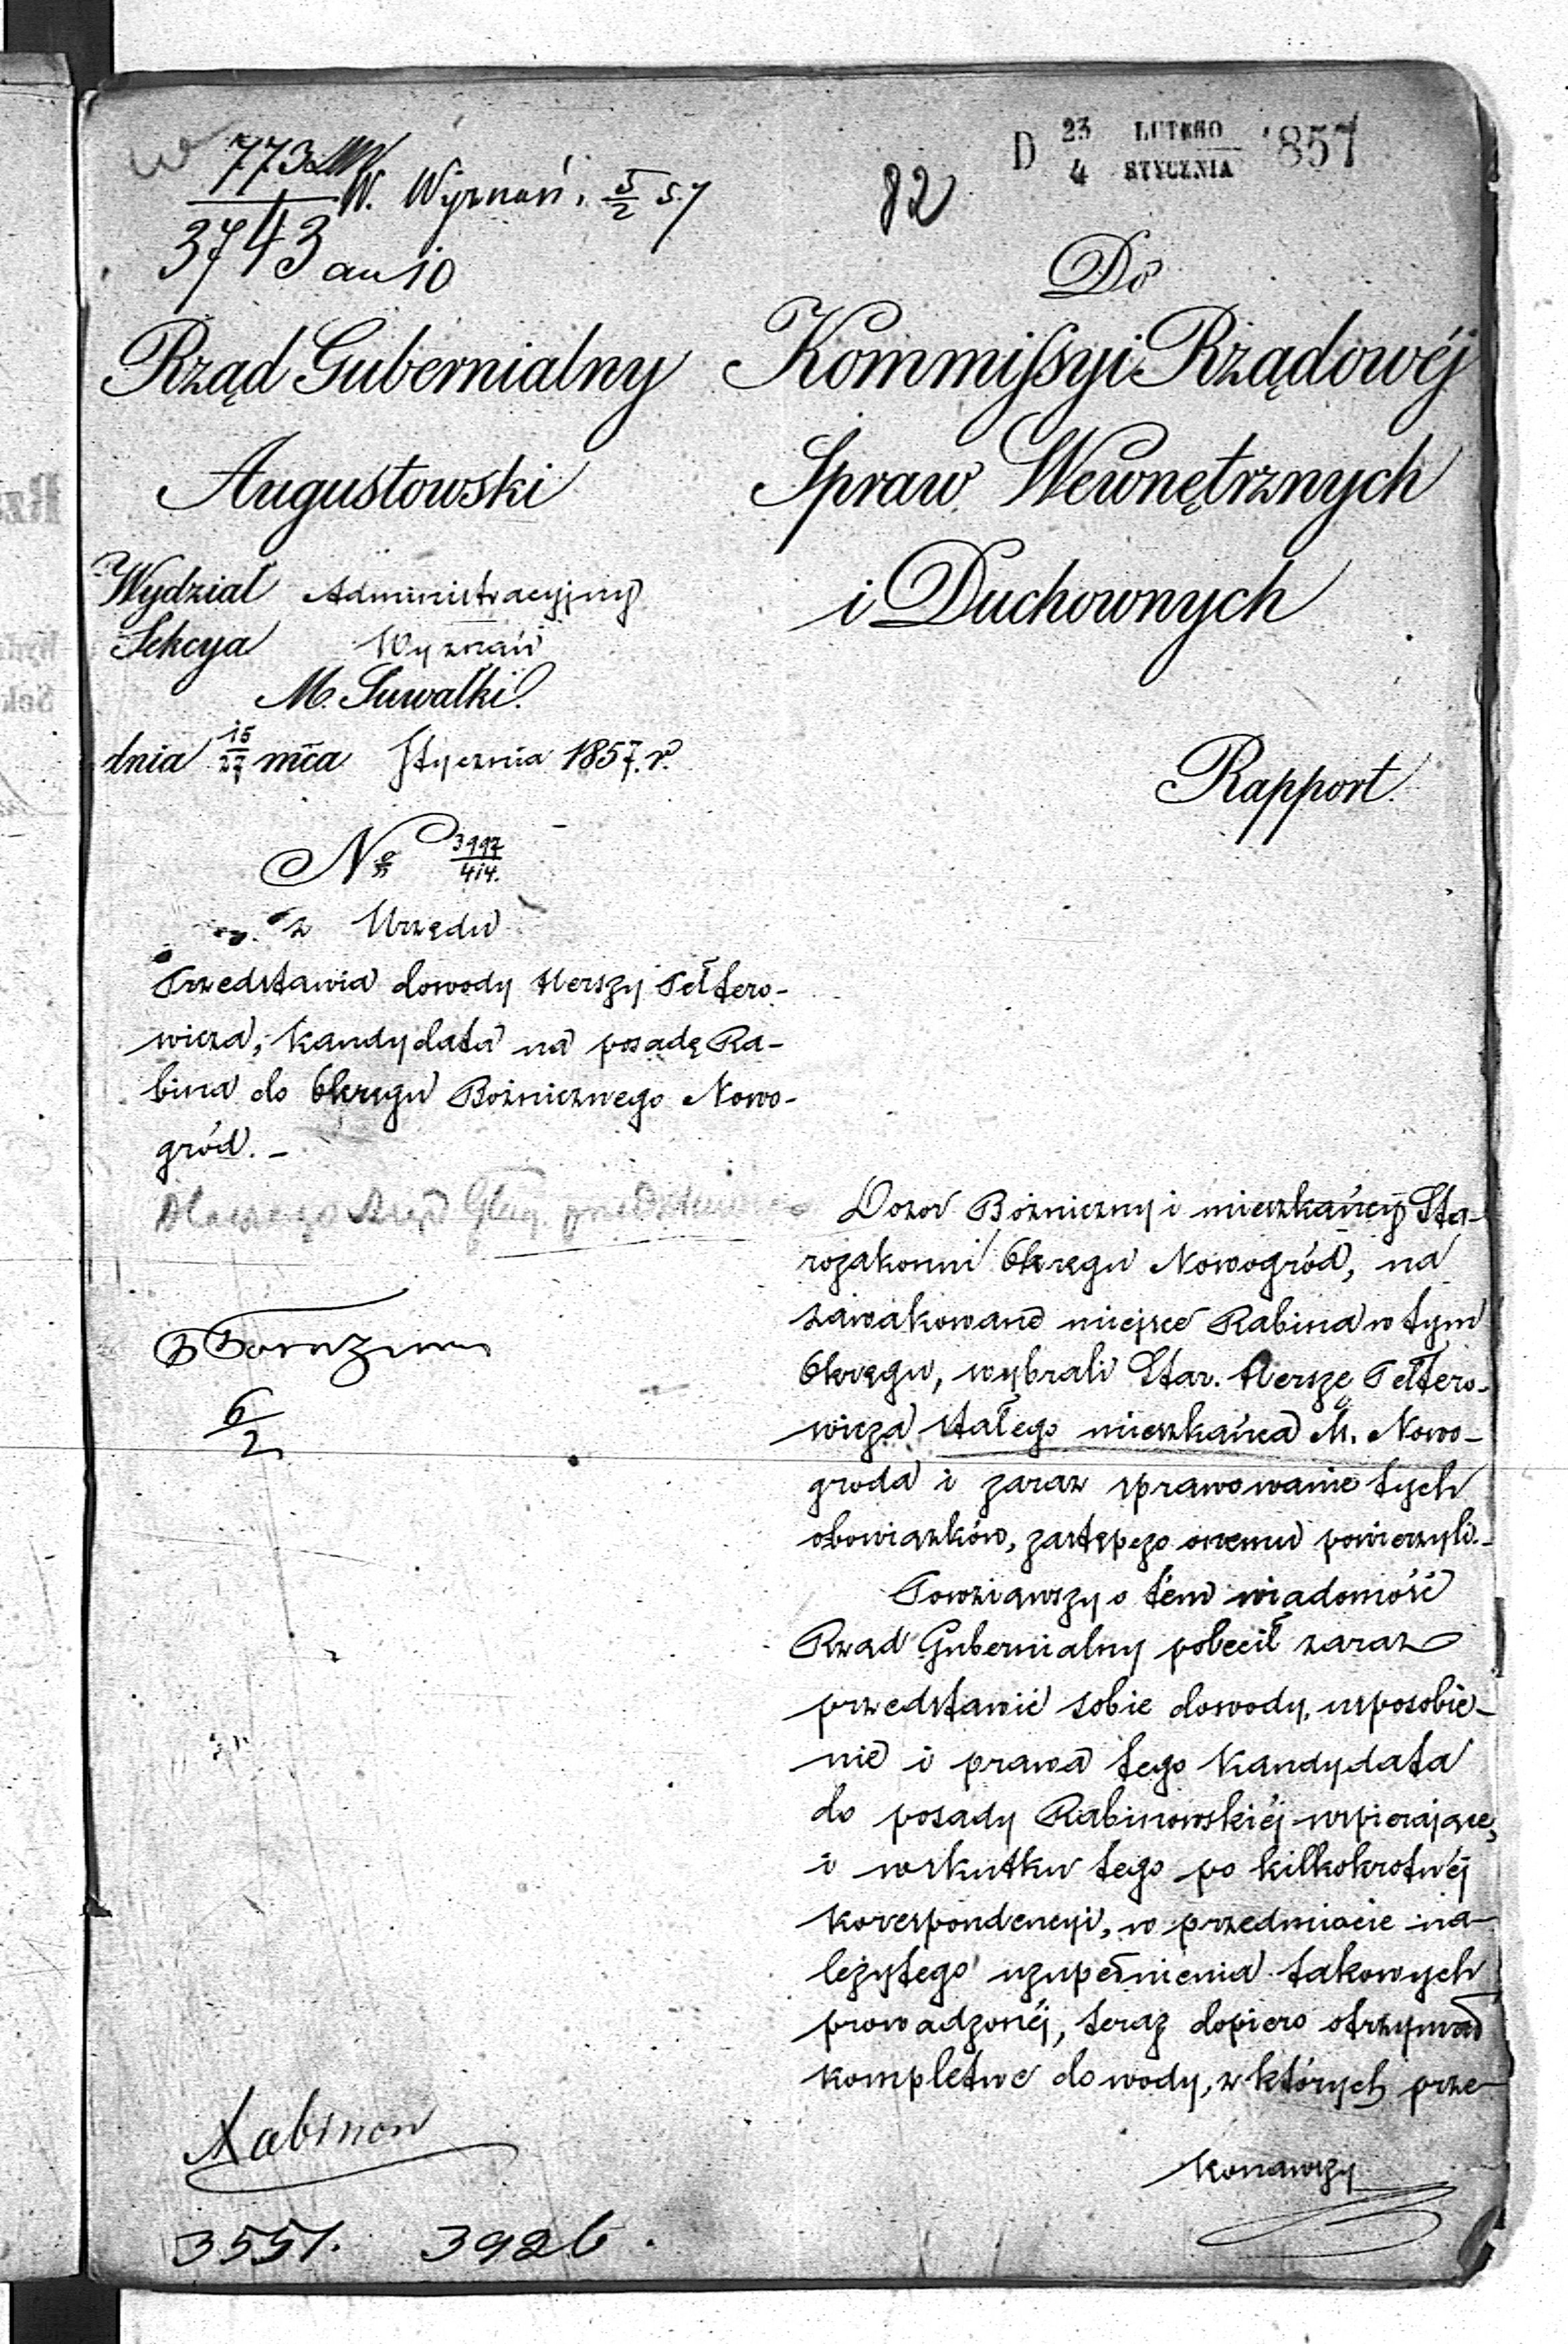 773
3743 an 10
W. Wyznań. 5/2 57
82
D 23 LUTEGO
4 STYCZNIA 1857
Rząd Gubernialny
Augustowski
Wydział Administracyjny
Sekcya Wyznań
M. Suwałki.
dnia 15/27 mca Stycznia 1857. r.
No 3997/414.
z Urzędu
Przedstawia dowody Herszy Pełtero-
wicza, kandydata na posadę Ra-
bina do Okręgu Bożnicznego Nowo-
gród. –
6/2
Rabinow
3551. 3926.
Do
Kommissyi Rządowéj
Spraw Wewnętrznych
i Duchownych
Rapport.
Dozór Bożniczny i mieszkańcy Sta-
rozakonni Okręgu Nowogród, na
zawakowane miejsce Rabina w tym
Okręgu, wybrali Star. Herszę Pełtero-
wicza stałego mieszkańca M. Nowo-
groda i zaraz sprawowanie tych
obowiązków, zastępczo onemu powierzyli. –
Powziąwszy o tém wiadomość
Rząd Gubernialny polecił zaraz
przedstawić sobie dowody, usposobie-
nie i prawa tego kandydata
do posady Rabinowskiéj wspierające,
i wskutku tego po kilkokrotnéj
korespondencyi, w przedmiocie na-
leżytego uzupełnienia takowych
prowadzonéj, teraz dopiero otrzymał
kompletne dowody, z których prze-
konawszy